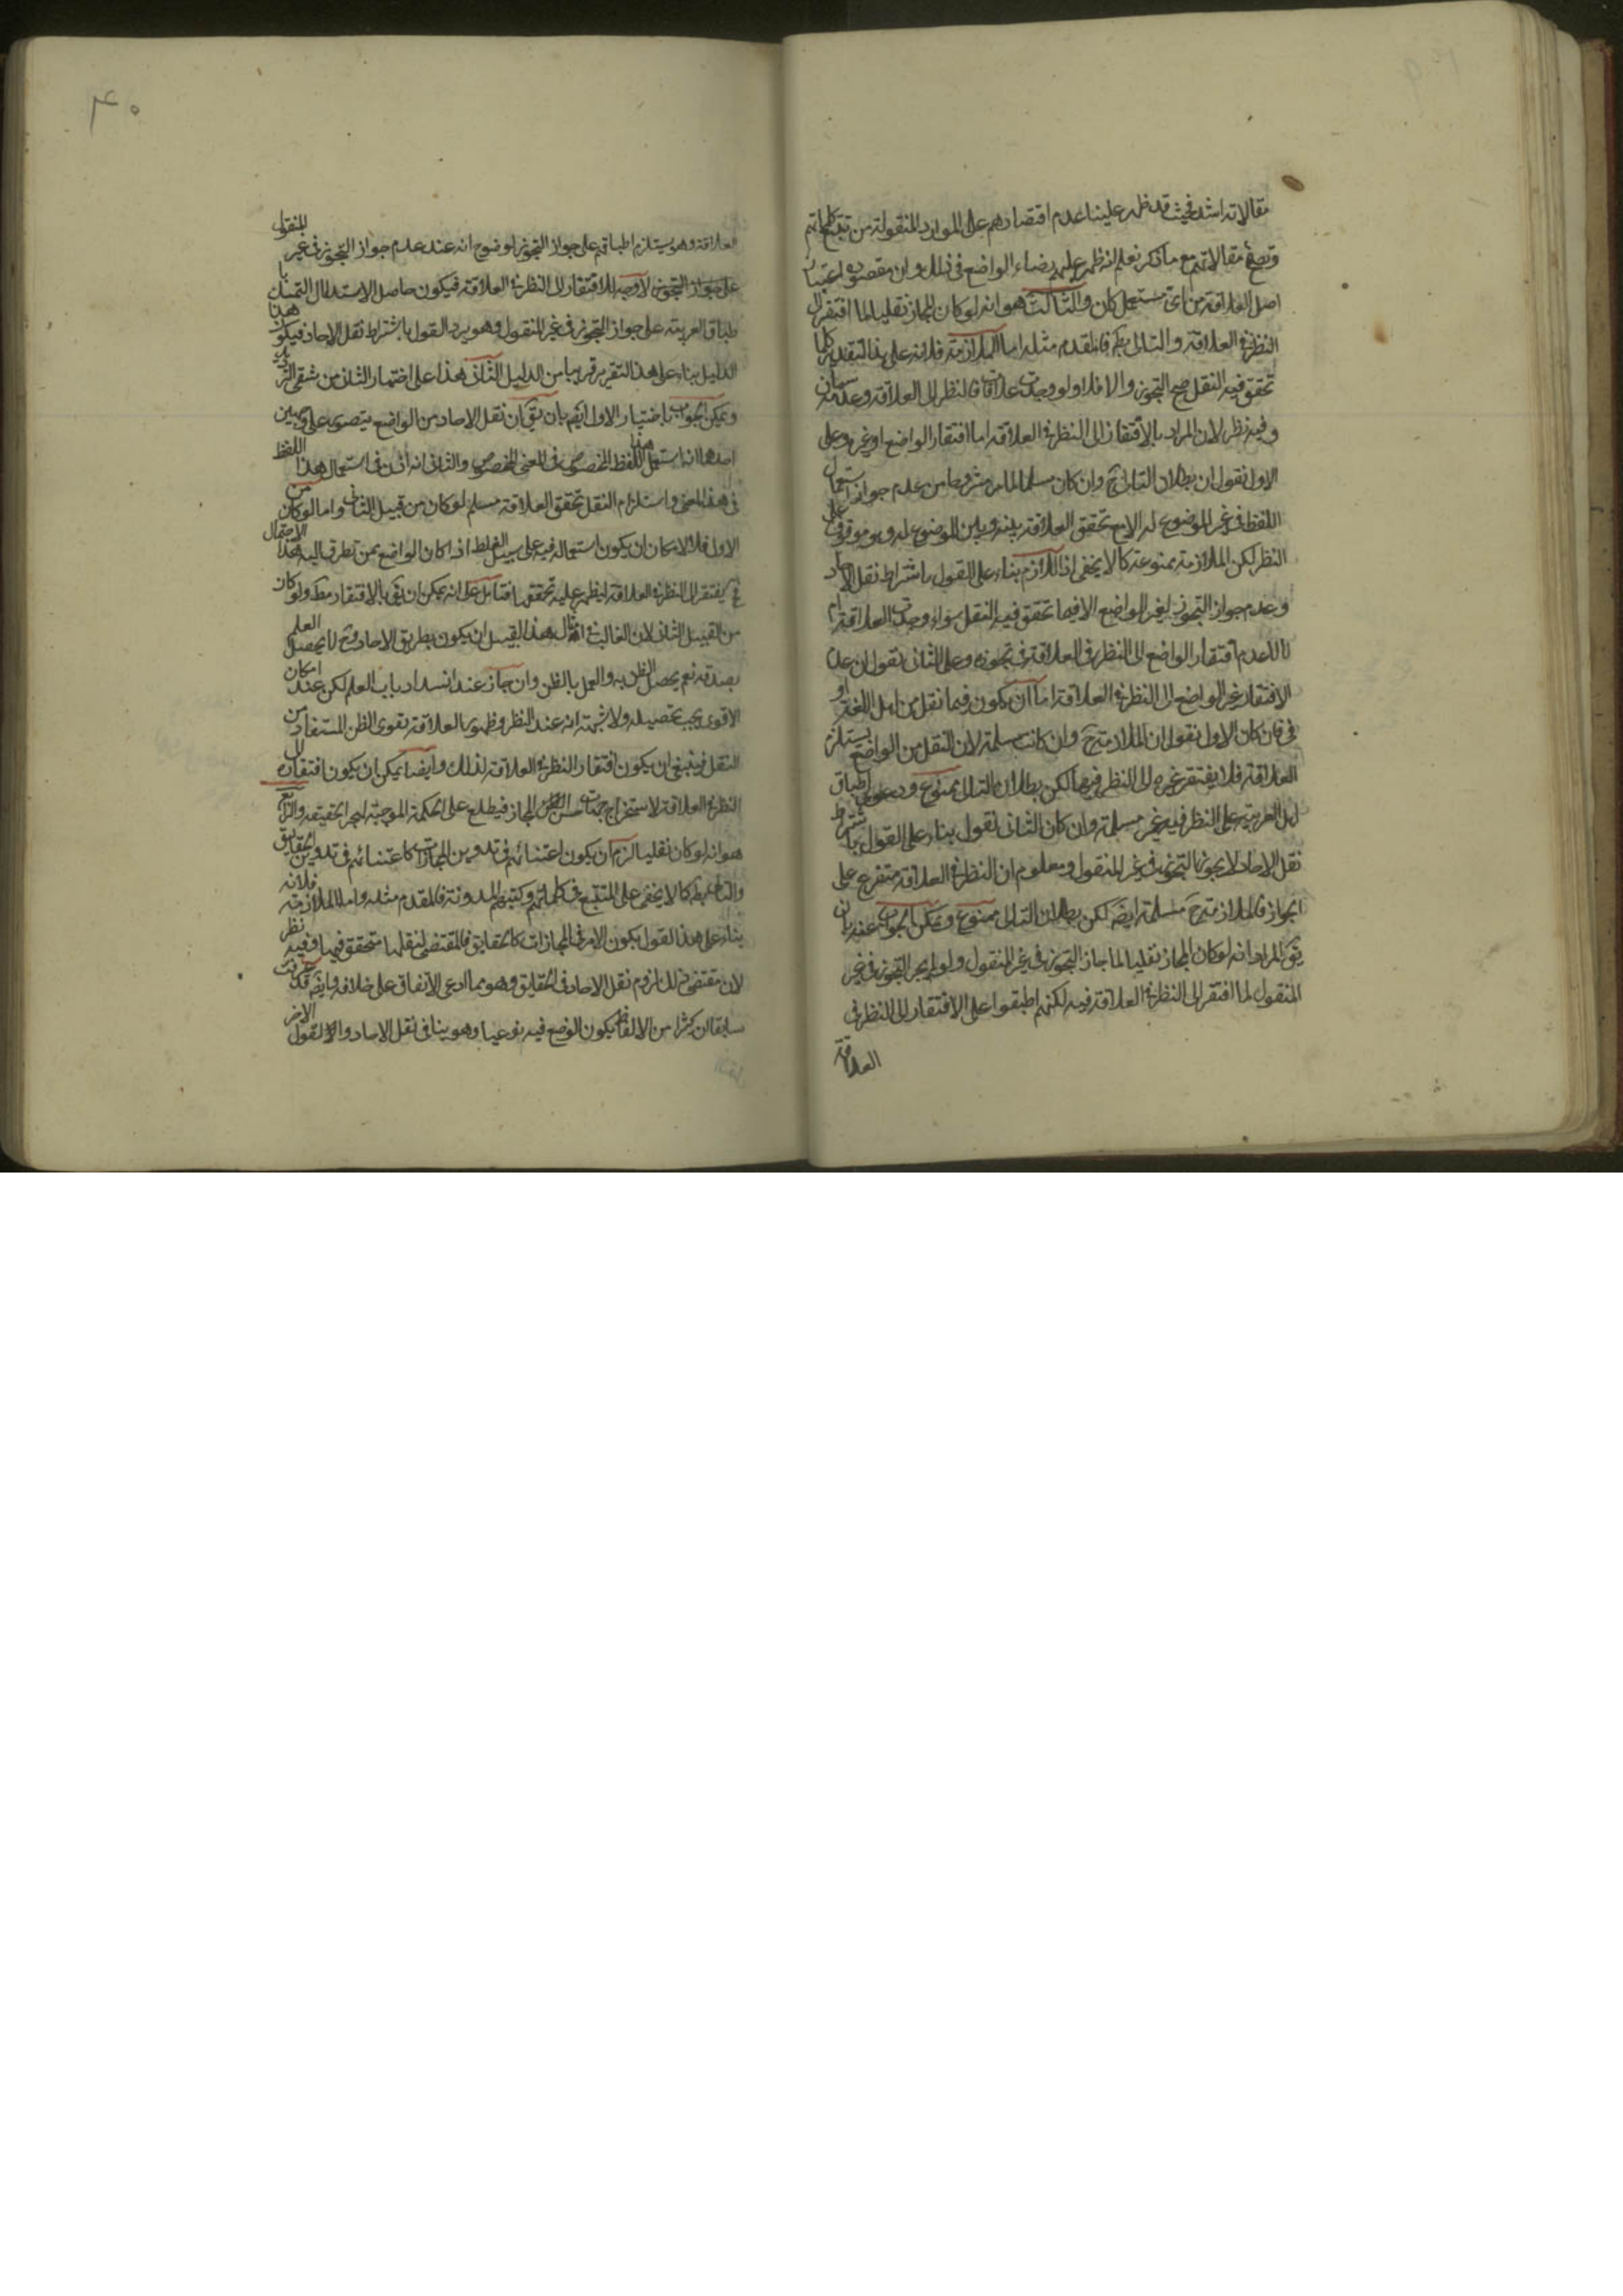 مقالاته اشد فحيث قد ظهر علينا عدم اقتصارهم على الموارد المنقولة من تتبع كلماتهم
وتصفح مقالاتهم مع ما ذكر نعلم انه ظهر عليهم رضاء الواضع في ذلك وان مقصوده اعتبار
اصل العلاقة من اي مستعمل كان والثالث هو انه لو كان المجاز نقليا لما افتقر الى
النظر في العلاقة والتالي بط فالمقدم مثله اما الملازمة فلانه على هذا التقدير كلما
تحقق فيه النقل صح التجوز والا فلا ولو وجدت علاقة فالنظر الى العلاقة وعدمه سيان
وفيه نظر لان المراد بالافتقار الى النظر في العلاقة اما افتقار الواضع او غيره وعلى
الاول نقول ان بطلان التالي ح وان كان مسلما لما مر مشروحا من عدم جواز استعمال
اللفظ في غير الموضوع له الا مع تحقق العلاقة بينه وبين الموضوع له وهو موقوف على
النظر لكن الملازمة ممنوعة كما لا يخفى اذ اللازم بناء على القول باشتراط نقل الاحاد
وعدم جواز التجوز لغير الواضع الا فيما تحقق فيه النقل سواء وجدت العلاقة ام
لا لا عدم افتقار الواضع الى النظر في العلاقة في تجوزه وعلى الثاني نقول ان عدم
الافتقار غير الواضع الى النظر في العلاقة اما ان يكون فيما نقل من اهل اللغة او
في فان كان الاول نقول ان الملازمة ح وان كانت مسلمة لان النقل من الواضع يستلزم
العلاقة فلا يفتقر غيره الى النظر فيها لكن بطلان التالي ممنوع ودعوى اطباق
اهل العربية على النظر فيه غير مسلمة وان كان الثاني نقول بناء على القول باشتراط
نقل الاحاد لا يجوز التجوز في غير المنقول ومعلوم ان النظر في العلاقة متفرع على
الجواز فالملازمة ح مسلمة ايضَ لكن بطلان التالي ممنوع ويمكن الجواب عنه بان
يقَ المراد انه لو كان المجاز نقليا لما جاز التجوز في غير المنقول ولو لم يجز التجوز في غير
المنقول لما افتقر الى النظر في العلاقة فيه لكنهم اطبقوا على الافتقار الى النظر في
العلاقة
العلاقة وهو يستلزم اطباقهم على جواز التجوز لوضوح انه عند عدم جواز التجوز في غير المنقول
على جواز التجوز لا وجه للافتقار الى النظر في العلاقة فيكون حاصل الاستدلال التمسك با
طباق العربية على جواز التجوز في غير المنقول وهو يرد القول باشتراط نقل الاحاد فيكون هذا
الدليل بناء على هذا التقرير قريبا من الدليل الثاني هذا على اختيار الثاني من شقي الترديد
ويمكن الجواب باختيار الاول ايضَ بان يقَ ان نقل الاحاد من الواضع يتصور على وجهين
احدهما انه استعمل هذا اللفظ المخصوص في المعنى المخصوص والثاني انه اذن في استعمال هذا اللفظ
في هذا المعنى واستلزام النقل تحقق العلاقة مسلم لو كان من قبيل الثاني واما لو كان من
الاول فلا لامكان ان يكون استعماله فيه على سبيل الغلط اذا كان الواضع ممن تطرق اليه هذا الاحتمال
فح يفتقر الى النظر في العلاقة ليظهر عليه تحققها فتأمل على انه يمكن ان يقَ بالافتقار مط ولو كان
من القبيل الثاني لان الغالب في امثال هذا القبيل ان يكون بطريق الاحاد وح لا يحصل العلم
بصدقه نعم يحصل الظن به والعمل بالظن وان جاز عند انسداد باب العلم لكن عند امكان
الاقوى يجب تحصيله ولا شبهة انه عند النظر وظهور العلاقة يتقوى الظن المستفاد من
النقل فينبغي ان يكون افتقار النظر في العلاقة لذلك وايضا يمكن ان يكون افتقاره الى
النظر في العلاقة لاستخراج جهات حسن المجاز فيطلع على الحكمة الموجبة لهجر الحقيقة والرابع
هو انه لو كان نقليا لزم ان يكون اعتنائهم في تدوين المجازات كاعتنائهم في تدوين الحقايق
والتالي بط كما لا يخفى على المتتبع في كلماتهم وكتبهم المدونة فالمقدم مثله واما الملازمة فلانه
بناء على هذا القول يكون الامر في المجازات كالحقايق فالمقتضي لنقلها متحقق فيها وفيه نظر
لان مقتضى ذلك لزوم نقل الاحاد في الحقايق وهو مما ادعى الاتفاق على خلافه وايضَ قد عرفت
سابقا ان كثيرا من الالفاظ يكون الوضع فيه نوعيا وهو ينافي نقل الاحاد والا لقول الاخر